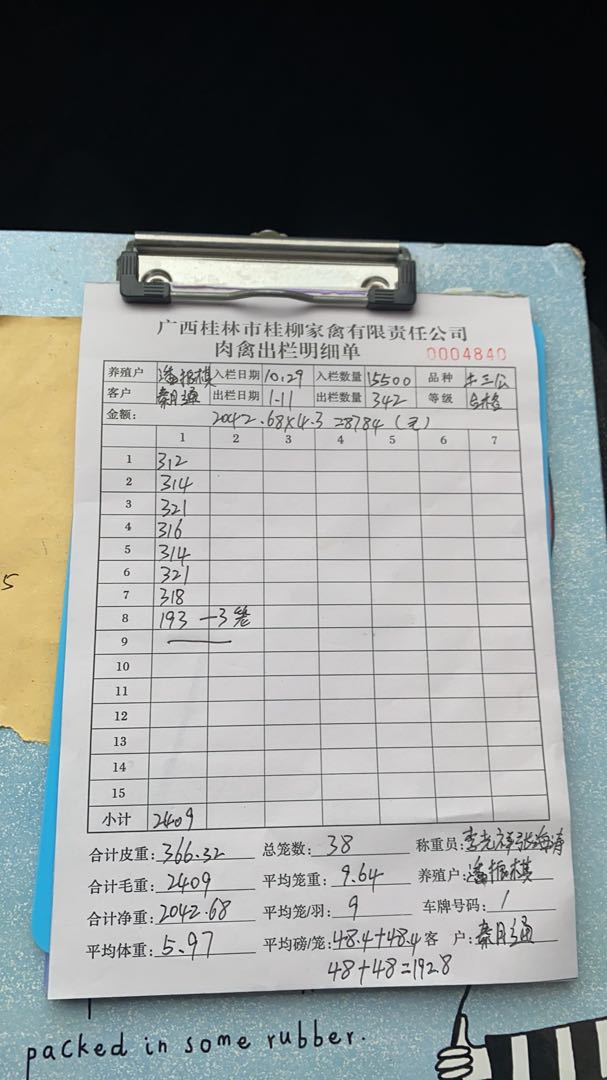 广西桂林市桂柳家禽有限责任公司
肉禽出栏明细单 0004840
养殖户 潘振棋 入栏日期 10.29 入栏数量 15500 品种 土三公
客户 秦月通 出栏日期 1-11 出栏数量 342 等级 合格
金额: 2042.68×14.3 28784 (元)
1 2 3 4 5 6 7
1 312
2 314
3 321
4 316
5 314
6 321
7 318
8 193 一3笼
9
10
11
12
13
14
15
小计 2409
合计皮重: 366.32 总笼数: 38 称重员: 李光祥 张海涛
合计毛重: 2409 平均笼重: 9.64 养殖户: 潘振棋
合计净重: 2042.68 平均笼/羽: 9 车牌号码: 1
平均体重: 5.97 平均磅/笼: 48.4+48.4 客 户: 秦月通
48+48=192.8
5
packed in some rubber.